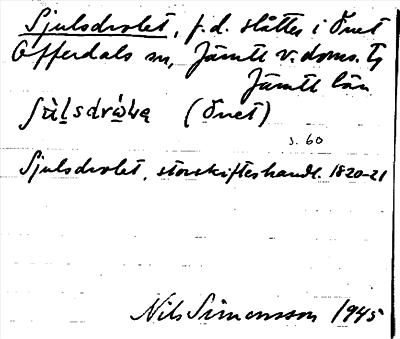 Sjulsdrolet, f.d. slåtter i Önet
Offerdals sn, Jämtl v. doms. Ts
Jämtl län
(Önet)
s. 60
Sjulsdrolet, storskifteshandl. 1820-21
Nils Simonsson 1945